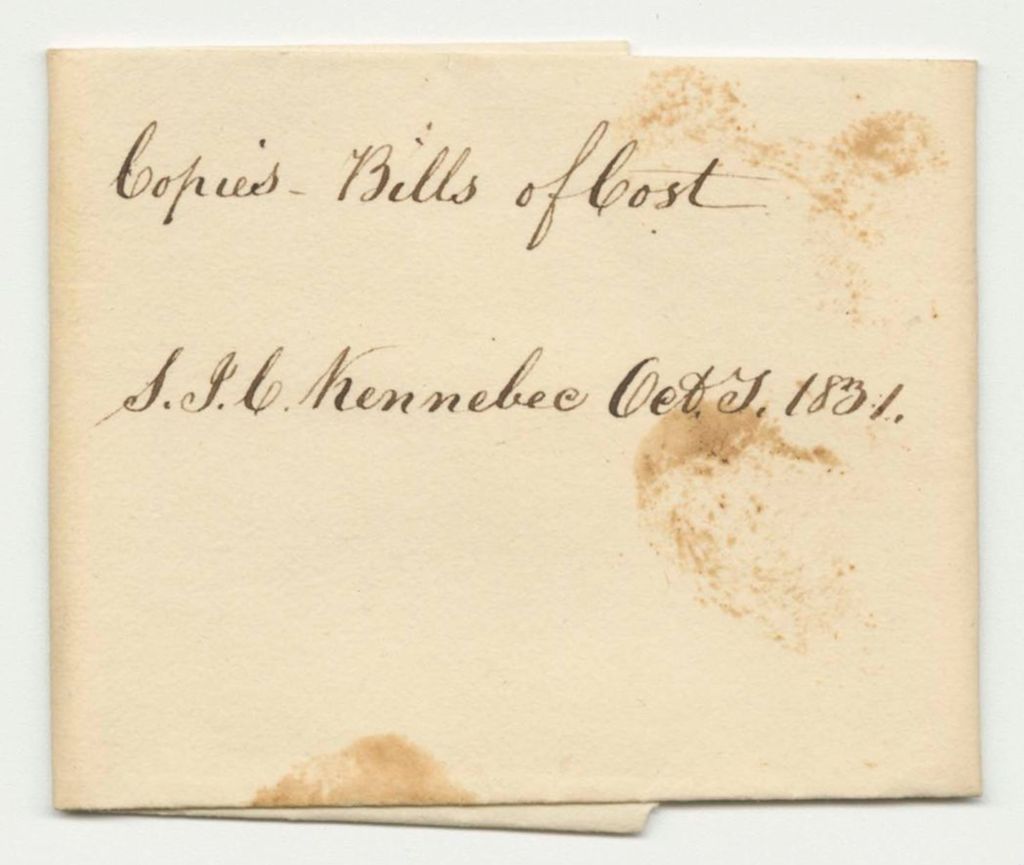 Copies - Bills of Cost
S. J. C. Kennebec Oct. T. 1831.